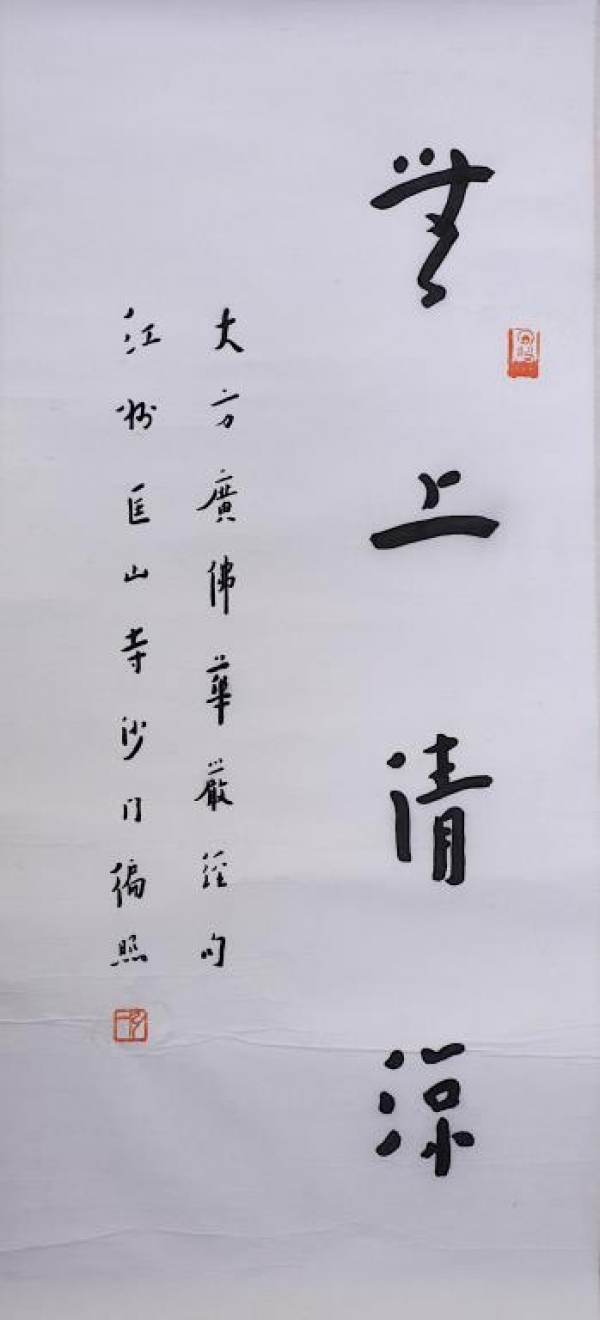 無上清涼
大方廣佛華嚴經句
江州匡山寺沙门徧照